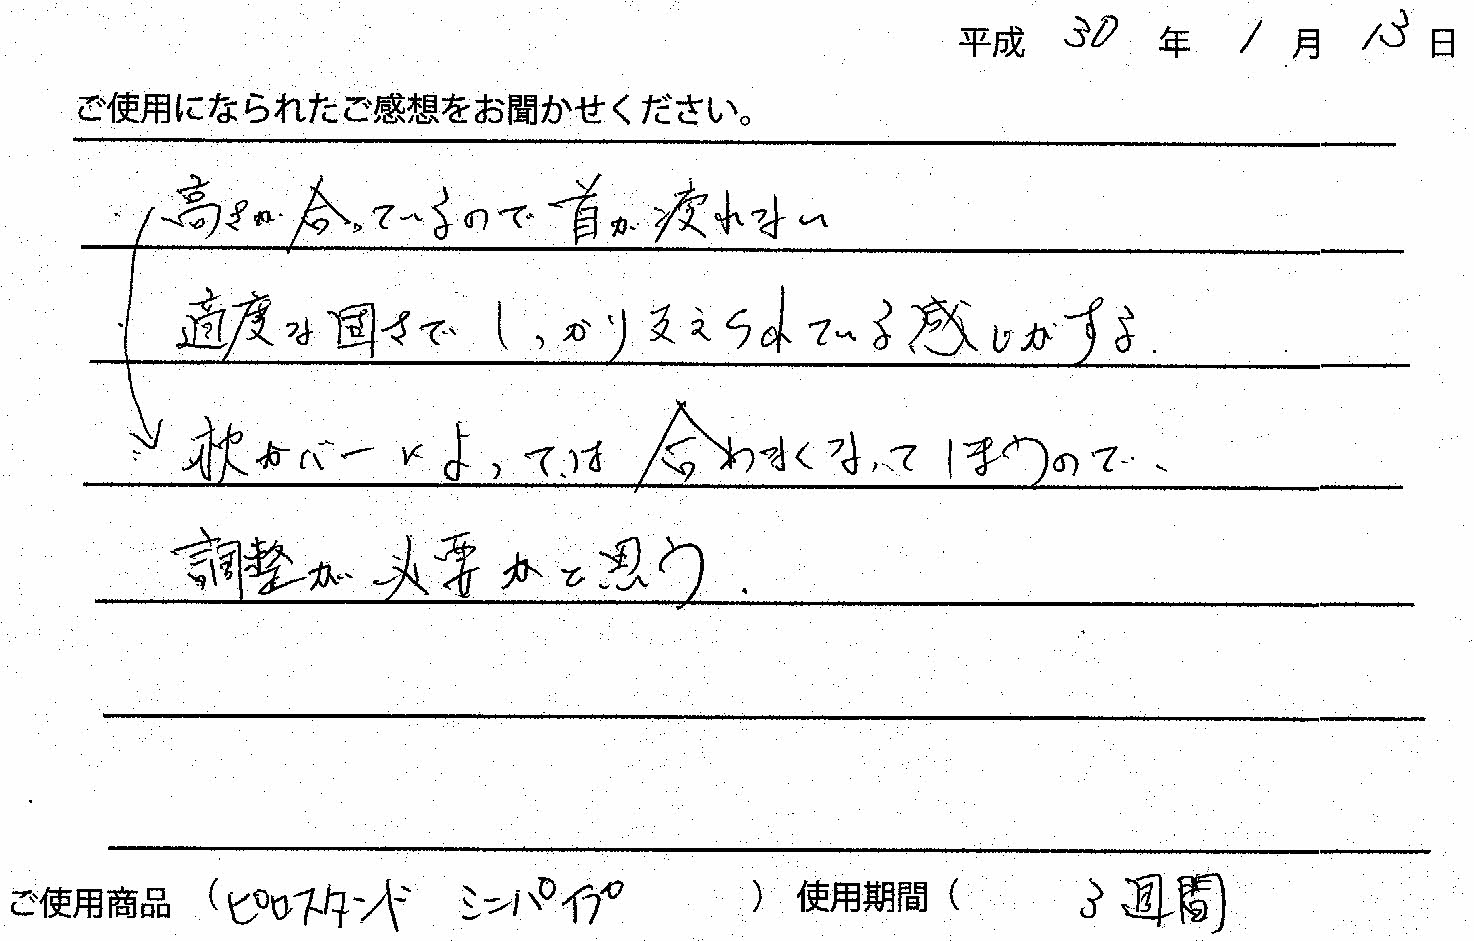 平成 30 年 1 月 13 日
ご使用になられたご感想をお聞かせください。
高さが合っているので首が疲れない
適度な固さでしっかり支えられている感じがする.
枕カバーによっては合わなくなってしまうので、
調整が必要かと思う.
ご使用商品 (ピロスタンド ミニパイプ ) 使用期間 ( 3週間